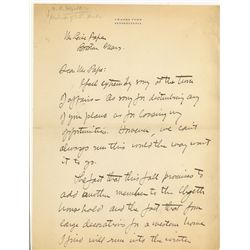 CHADDS FORD
PENNSYLVANIA
Mr Eric Pape
Boston Mass.
Dear Mr Pape:
I feel extremely sorry at the turn
of affairs – as sorry for disturbing any
of your plans as for losing my
opportunities. However, we can't
always run this world the way we want
it to go.
The fact that this fall promises to
add another member to the Wyeth
household and the fact that four
large decorations for a western home
I find will run into the winter